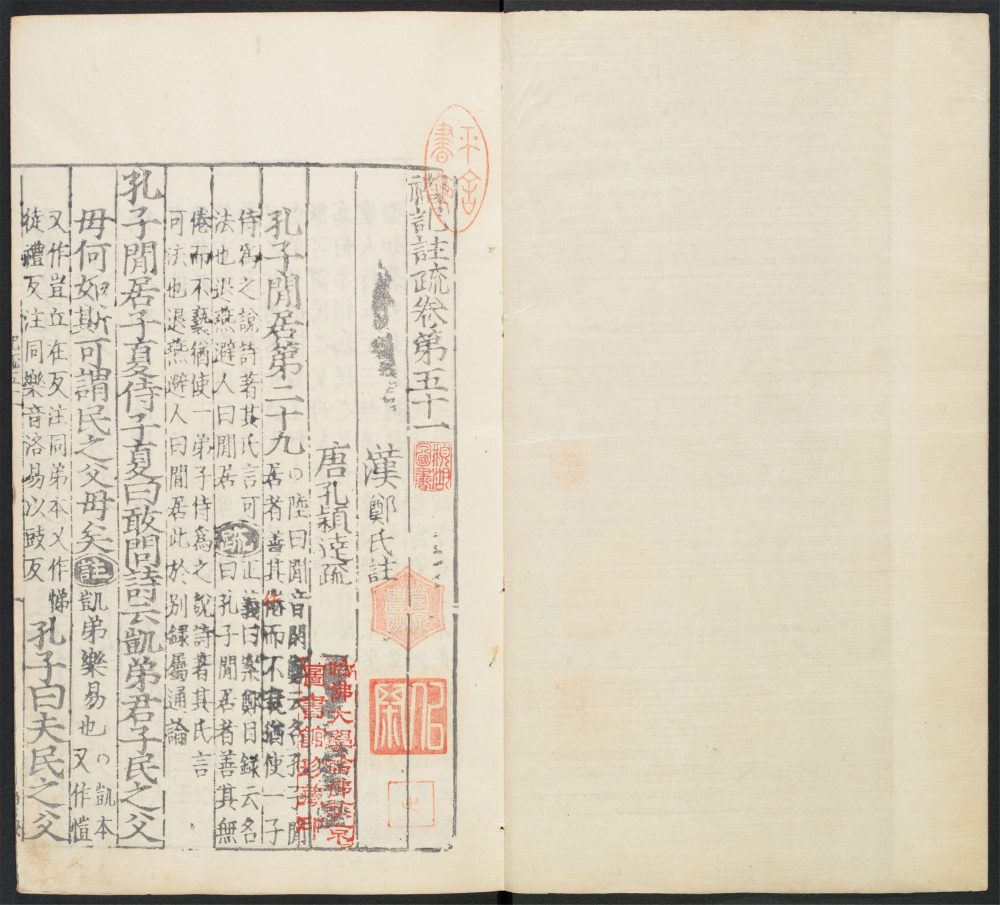 禮記註疏卷第五十一
漢鄭氏註
唐孔穎達疏
孔子閒居第二十九
○陸曰閒音閑鄭云名孔子閒
居者善其倦而不褻猶使一子
侍爲之說詩著其氏言可
法也退燕避人曰閒居
疏
正義曰案鄭目録云名
曰孔子閒居者善其無
倦而不褻猶使一弟子侍爲之說詩著其氏言
可法也退燕避人曰閒居此於別録屬通論
孔子閒居子夏侍子夏曰敢問詩云凱弟君子民之父
母何如斯可謂民之父母矣
註
凱弟樂易也○凱本
又作愷
又作豈丘在反注同弟本又作悌
徒禮反注同樂音洛易以豉反
孔子曰夫民之父
哈佛大學哈佛燕京
圖書館珍藏印